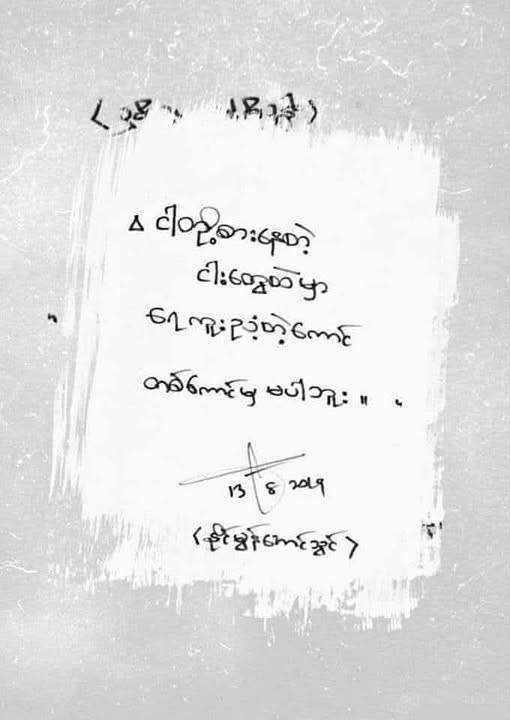 ငါတို့စားနေတဲ့
ငါးတွေထဲမှာ
ရေကူးညံ့တဲ့ကောင်
တစ်ကောင်မှ မပါဘူး။
13
8
၂၀၁၅
(နိုင်မွန်အောင်သွင်)